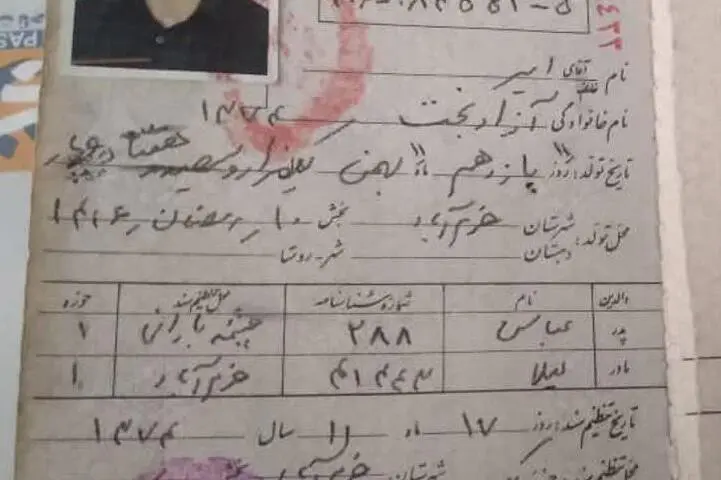 نام آقای امیر
نام خانوادگی آزادبخت ۱۳۷۴
تاریخ تولد: روز پانزدهم ماه بهمن یکهزار و سیصد و هفتاد و چهار
محل تولد: شهرستان خرم آباد بخش ۱۰ رمضان ۱۴۱۶
دهستان شهر - روستا
والدین نام شماره شناسنامه محل تنظیم سند حوزه
پدر عباس ۲۸۸ چشمه بارانی ۱
مادر لیلا خرم آباد ۱
تاریخ تنظیم سند: روز ۱۷ ماه ۱۱ سال ۱۳۷۴
محل تنظیم سند شهرستان خرم آباد بخش